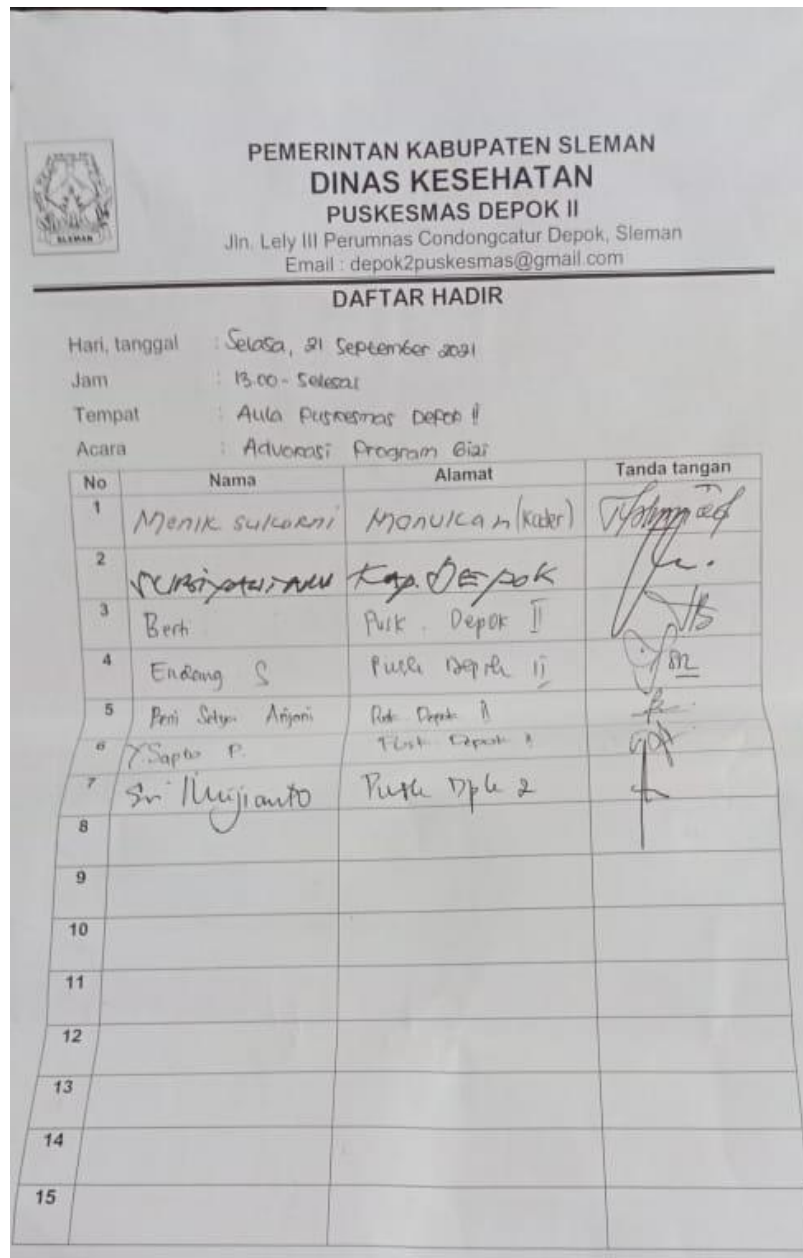 SLEMAN
PEMERINTAN KABUPATEN SLEMAN
DINAS KESEHATAN
PUSKESMAS DEPOK II
Jln. Lely III Perumnas Condongcatur Depok, Sleman
Email : depok2puskesmas@gmail.com
DAFTAR HADIR
Hari, tanggal : Selasa, 21 September 2021
Jam : 13.00 - Selesai
Tempat : Aula Puskesmas Depok II
Acara : Advokasi Program Gizi
No Nama Alamat Tanda tangan
1 Menik sukarni Manukan (Kader)
2 Kap. DEPOK
3 Berti Pusk. Depok II
4 Endang S Pusk Depok II
5 Peni Setyo Arijani Pusk Depok II
6 Y Sapto P. Pusk Depok II
7 Sri Mujianto Pusk Dpk 2
8
9
10
11
12
13
14
15